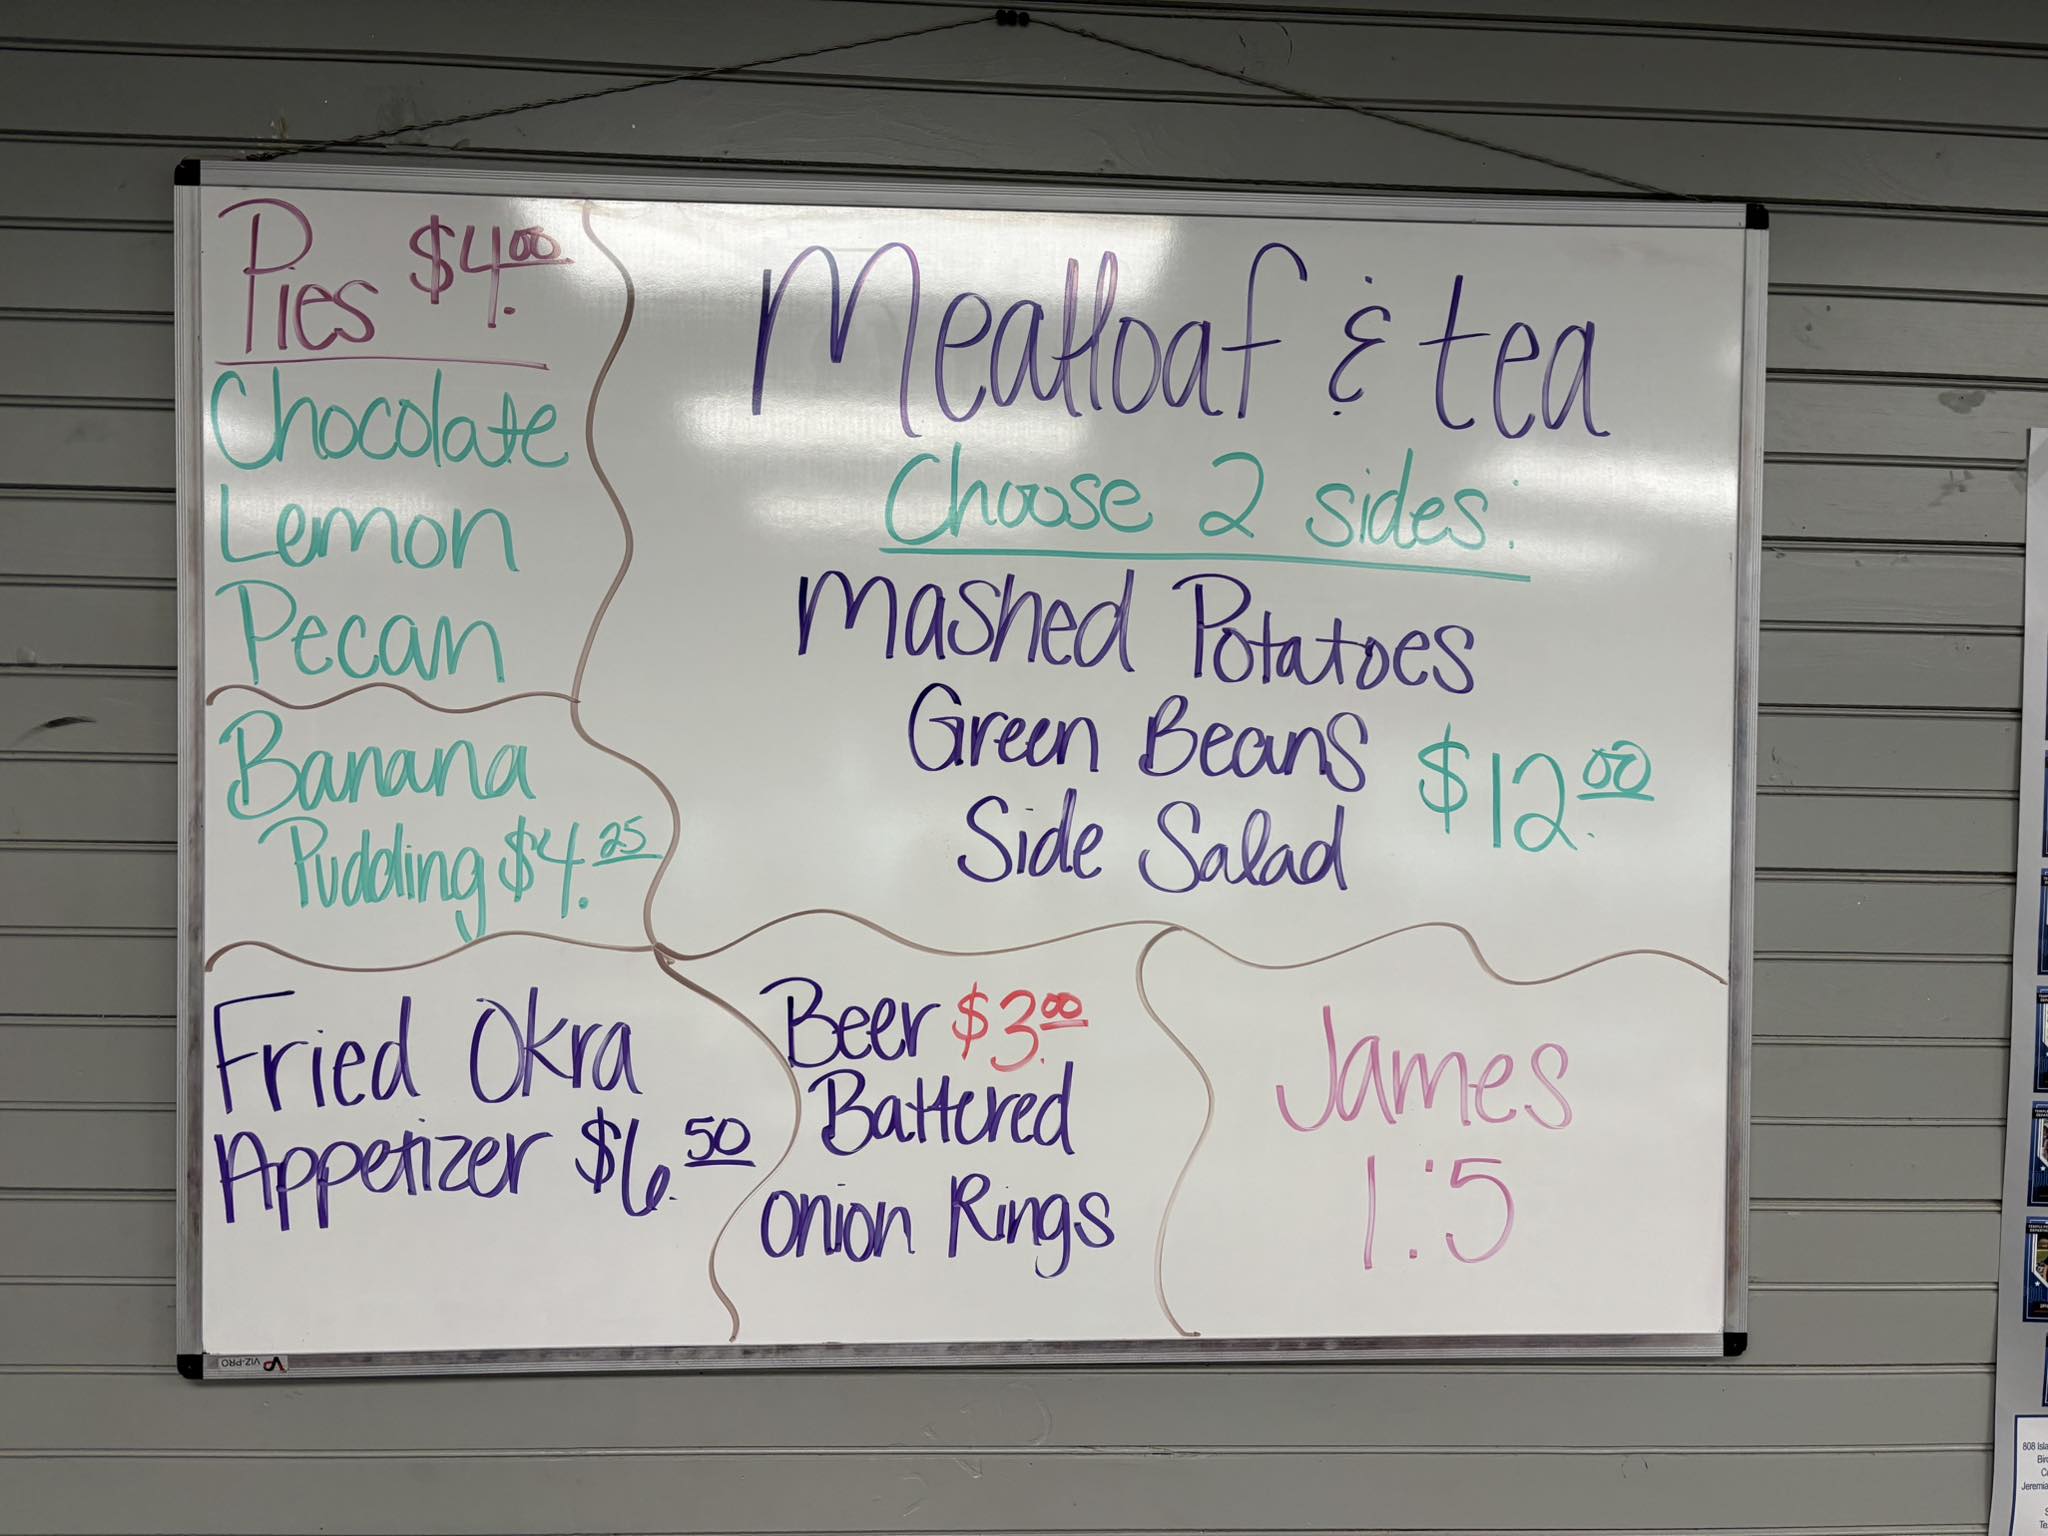 Pies $4.00
Chocolate
Lemon
Pecan
Banana
Pudding $4.25
Meatloaf & tea
Choose 2 sides:
Mashed Potatoes
Green Beans
Side Salad
$12.00
Fried Okra
Appetizer $6.50
Beer $3.00
Battered
Onion Rings
James
1:5
VIZ-PRO
808 Isla